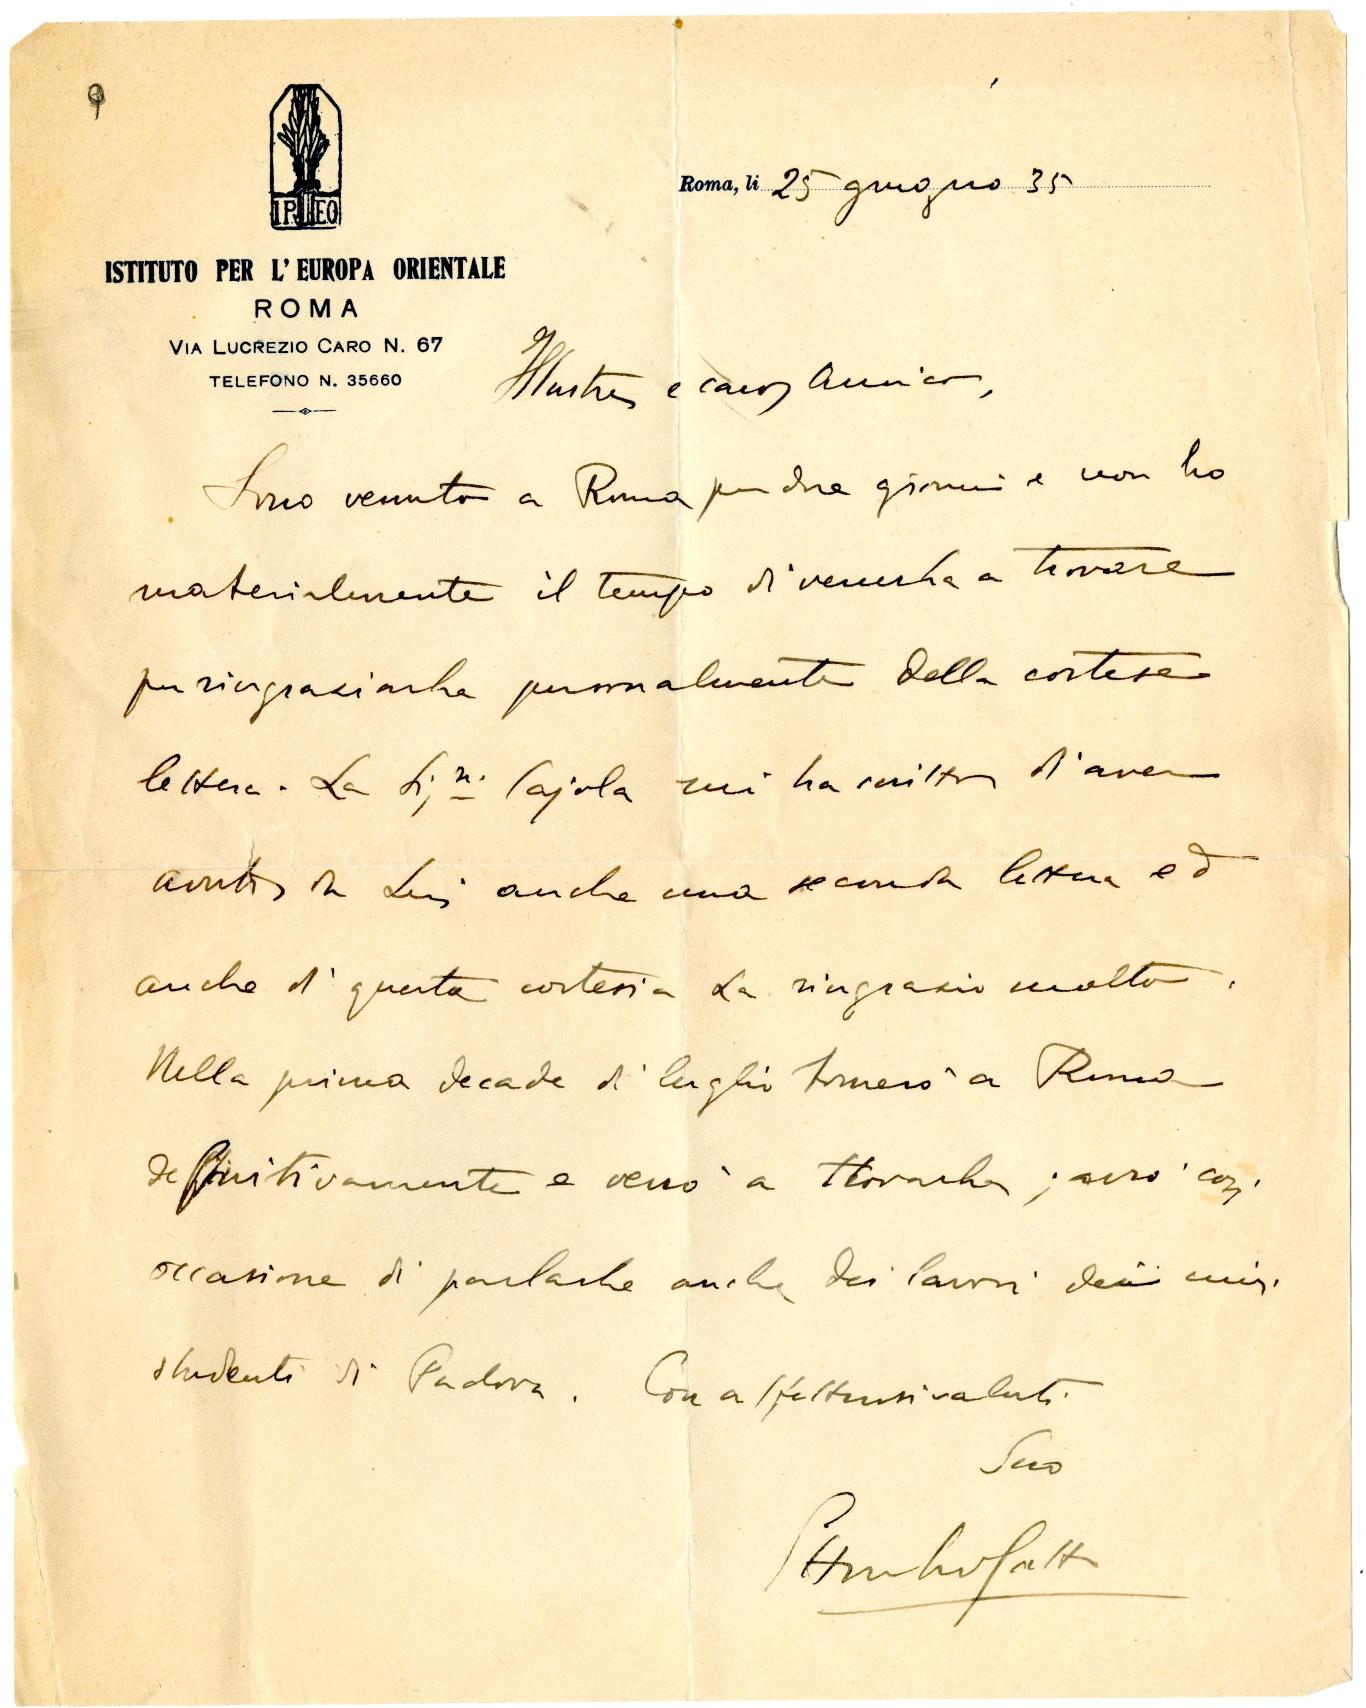 IPEO
Roma, li 25 giugno 35
ISTITUTO PER L'EUROPA ORIENTALE
ROMA
VIA LUCREZIO CARO N. 67
TELEFONO N. 35660
Illustre e caro Amico,
Sono venuto a Roma per due giorni e non ho
materialmente il tempo di venirla a trovare
per ringraziarla personalmente della cortese
lettera. La Sig.na Cajola mi ha scritto di aver
avuto da Lei anche una seconda lettera ed
anche di questa cortesia La ringrazio molto.
Nella prima decade di luglio tornerò a Roma
definitivamente e verrò a trovarla; avrò così
occasione di parlarle anche dei lavori dei miei
studenti di Padova. Con affettuosi saluti
Suo